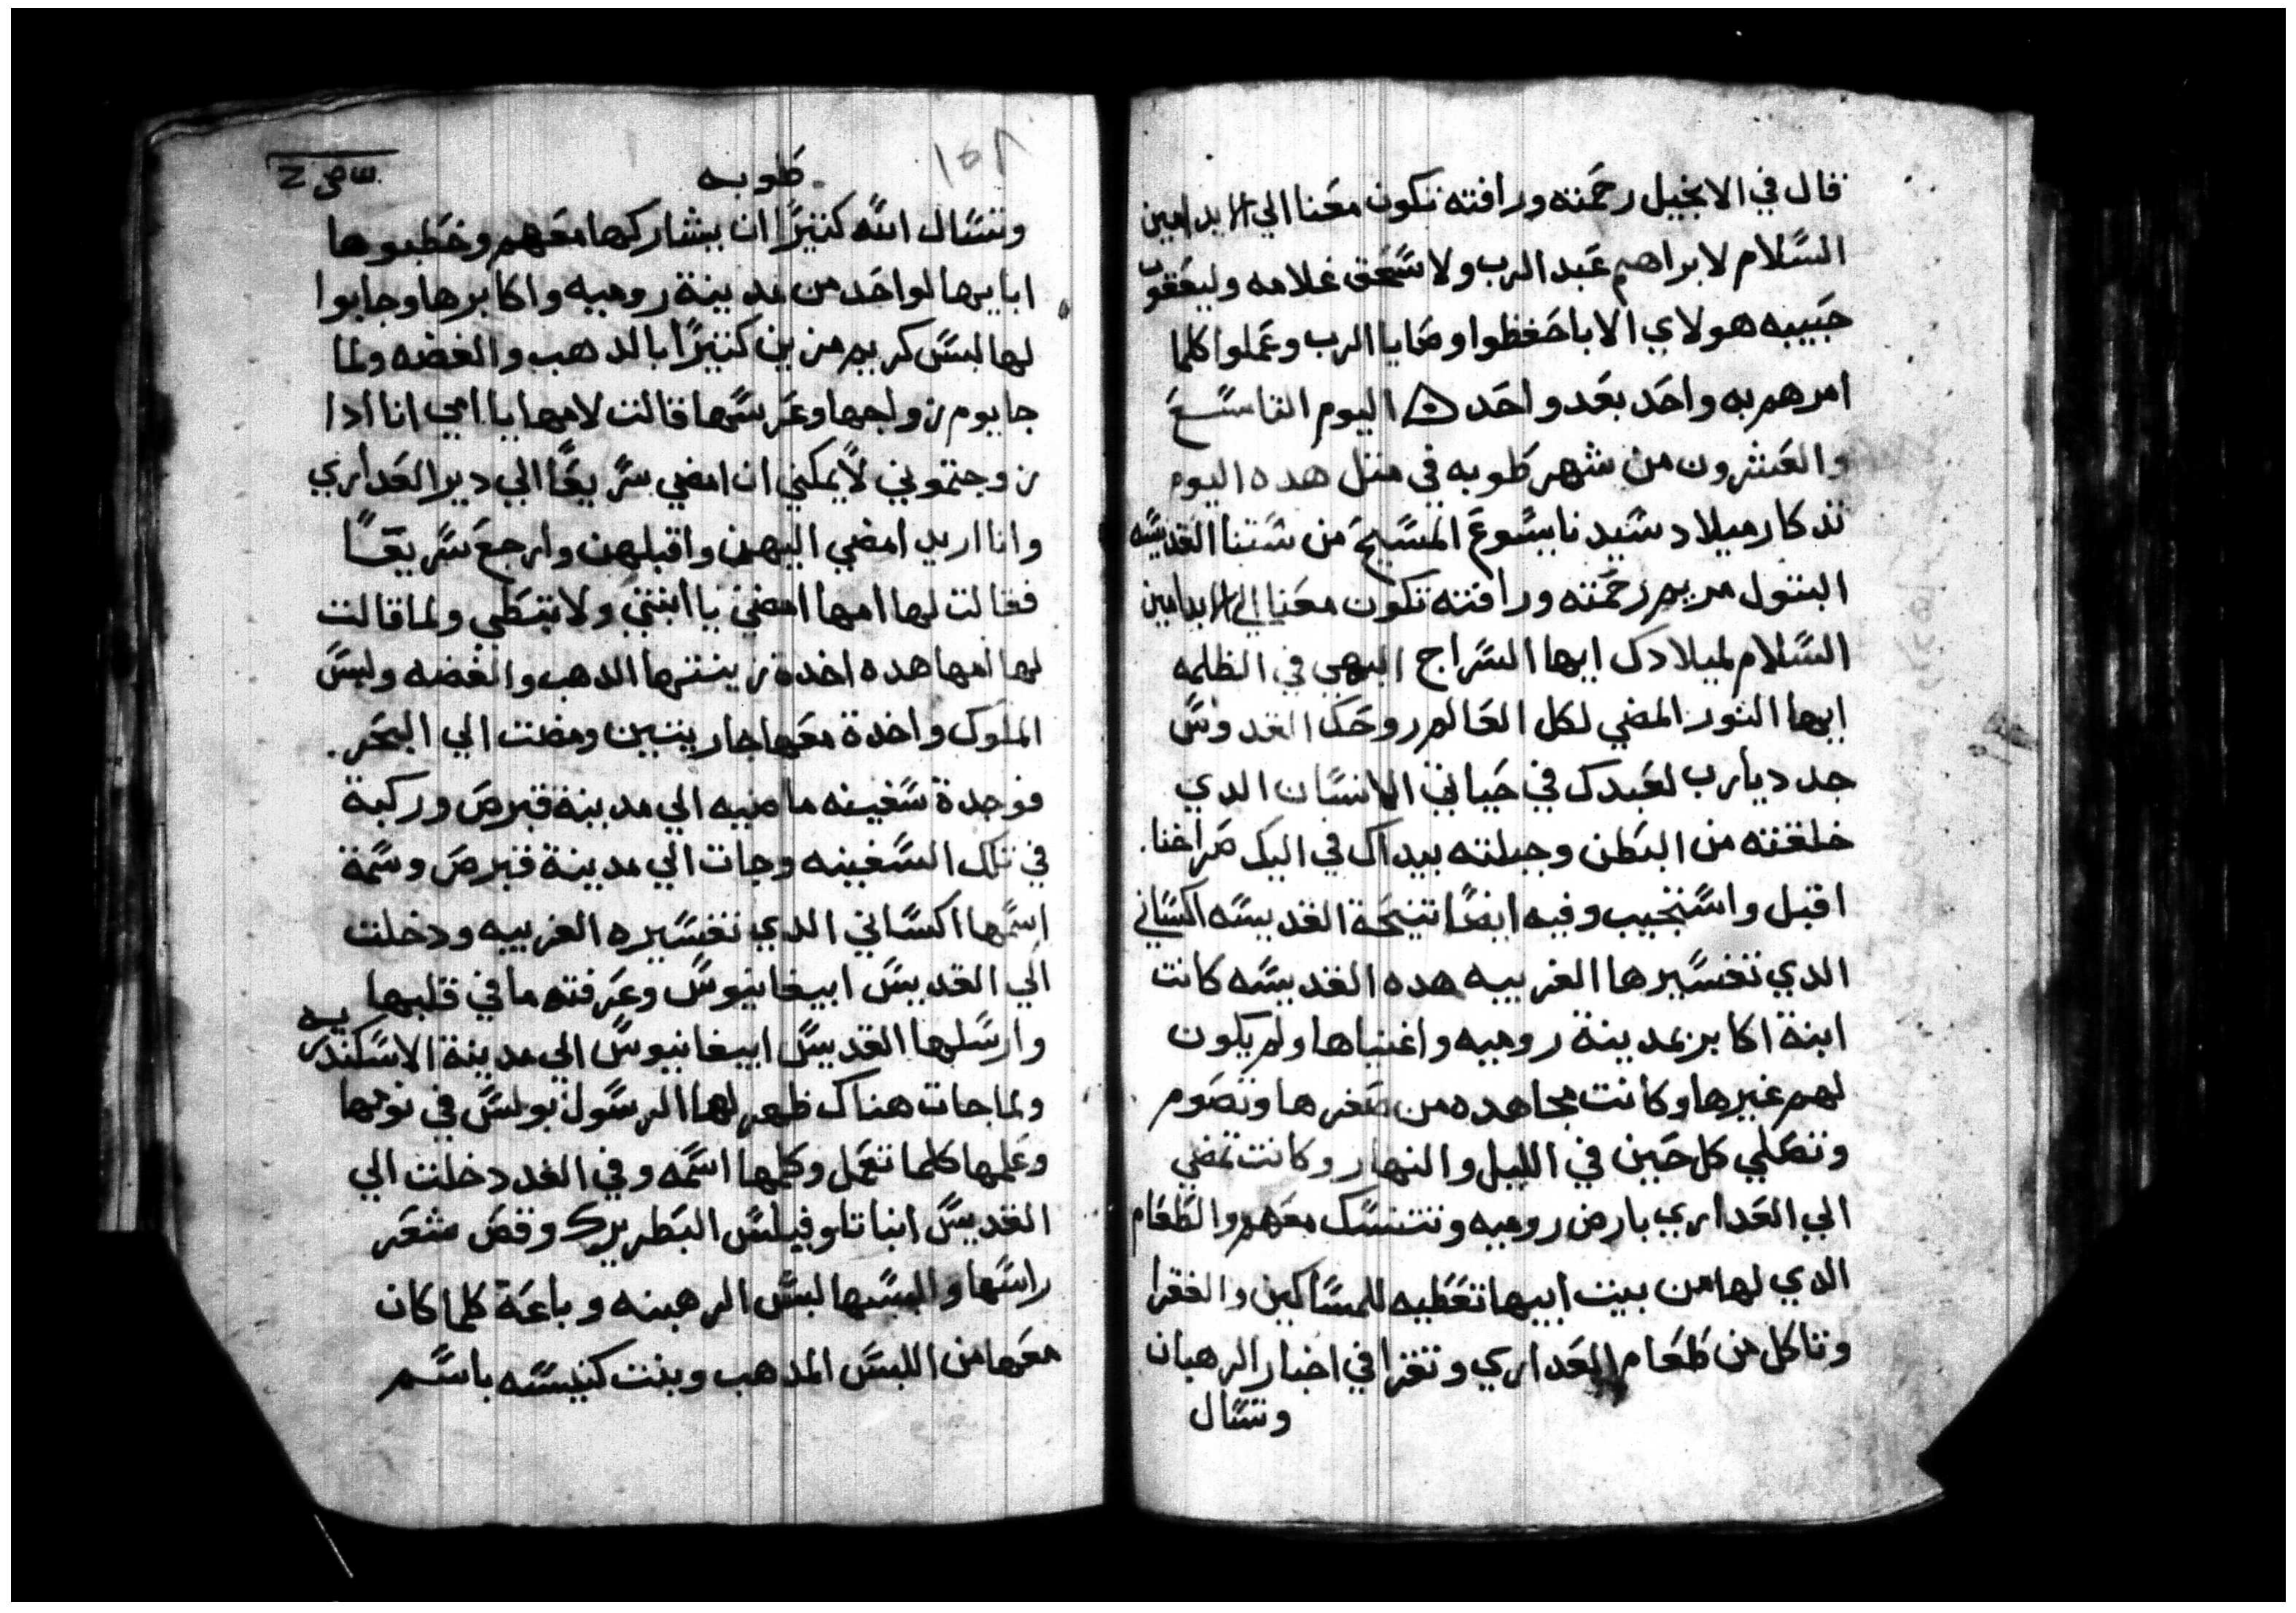 قال في الانجيل رحمته ورافته تكون معنا الي الابد امين
السلام لابراهيم عبد الرب ولاسحق غلامه وليعقوب
حبيبه هولاي الابا حفظوا وصايا الرب وعملوا كلما
امرهم به واحد بعد واحد اليوم التاسع
والعشرون من شهر طوبه في مثل هده اليوم
تدكار ميلاد سيدنا يسوع المسيح من ستنا القديسه
البتول مريم رحمته ورافته تكون معنا الي الابد امين
السلام لميلادك ايها السراج البهي في الظلمه
ايها النور المضي لكل العالم روحك القدوس
جدد يارب لعبدك في حياتي الانسان الدي
خلقته من البطن وجبلته بيداك في اليك صراخنا
اقبل واستجيب وفيه ايضا تنيحة القديسه اكساني
الدي تفسيرها الغريبه هده القديسه كانت
ابنة اكابر بمدينة روميه واغنياها ولم يكون
لهم غيرها وكانت مجاهده من صغرها وتصوم
وتصلي كل حين في الليل والنهار وكانت تمضي
الي العداري بارض روميه وتتنسك معهم والطعام
الدي لها من بيت ابيها تعطيه للمساكين والفقرا
وتاكل من طعام العداري وتقرا في اخبار الرهبان
وتسال
طوبه
١٥٨
وتسال الله كثيرا ان يشاركها معهم وخطبوها
ابايها لواحد من مدينة روميه واكابرها وجابوا
لها لبس كريم مزين كثيرا بالدهب والفضه ولما
جا يوم زواجها وعرسها قالت لامها يا امي انا ادا
زوجتموني لا يمكني ان امضي سريعا الي دير العداري
وانا اريد امضي اليهن واقبلهن وارجع سريعا
فقالت لها امها امضي يا ابنتي ولا تبتطي ولما قالت
لها امها هده اخدة زينتها الدهب والفضه ولبس
الملوك واخدة معها جاريتين ومضت الي البحر
فوجدة سفينه ماضيه الي مدينة قبرص وركبة
في تلك السفينه وجات الي مدينة قبرص وسمة
اسمها اكساني الدي تفسيره الغريبه ودخلت
الي القديس ابيفانيوس وعرفته ما في قلبها
وارسلها القديس ابيفانيوس الي مدينة الاسكندريه
ولما جات هناك ظهر لها الرسول بولس في نومها
وعلمها كلما تعمل وكلمها اسمه وفي الغد دخلت الي
القديس انبا تاوفيلس البطريرك وقص شعر
راسها والبسها لبس الرهبنه وباعة كلما كان
معها من اللبس المدهب وبنت كنيسه باسم